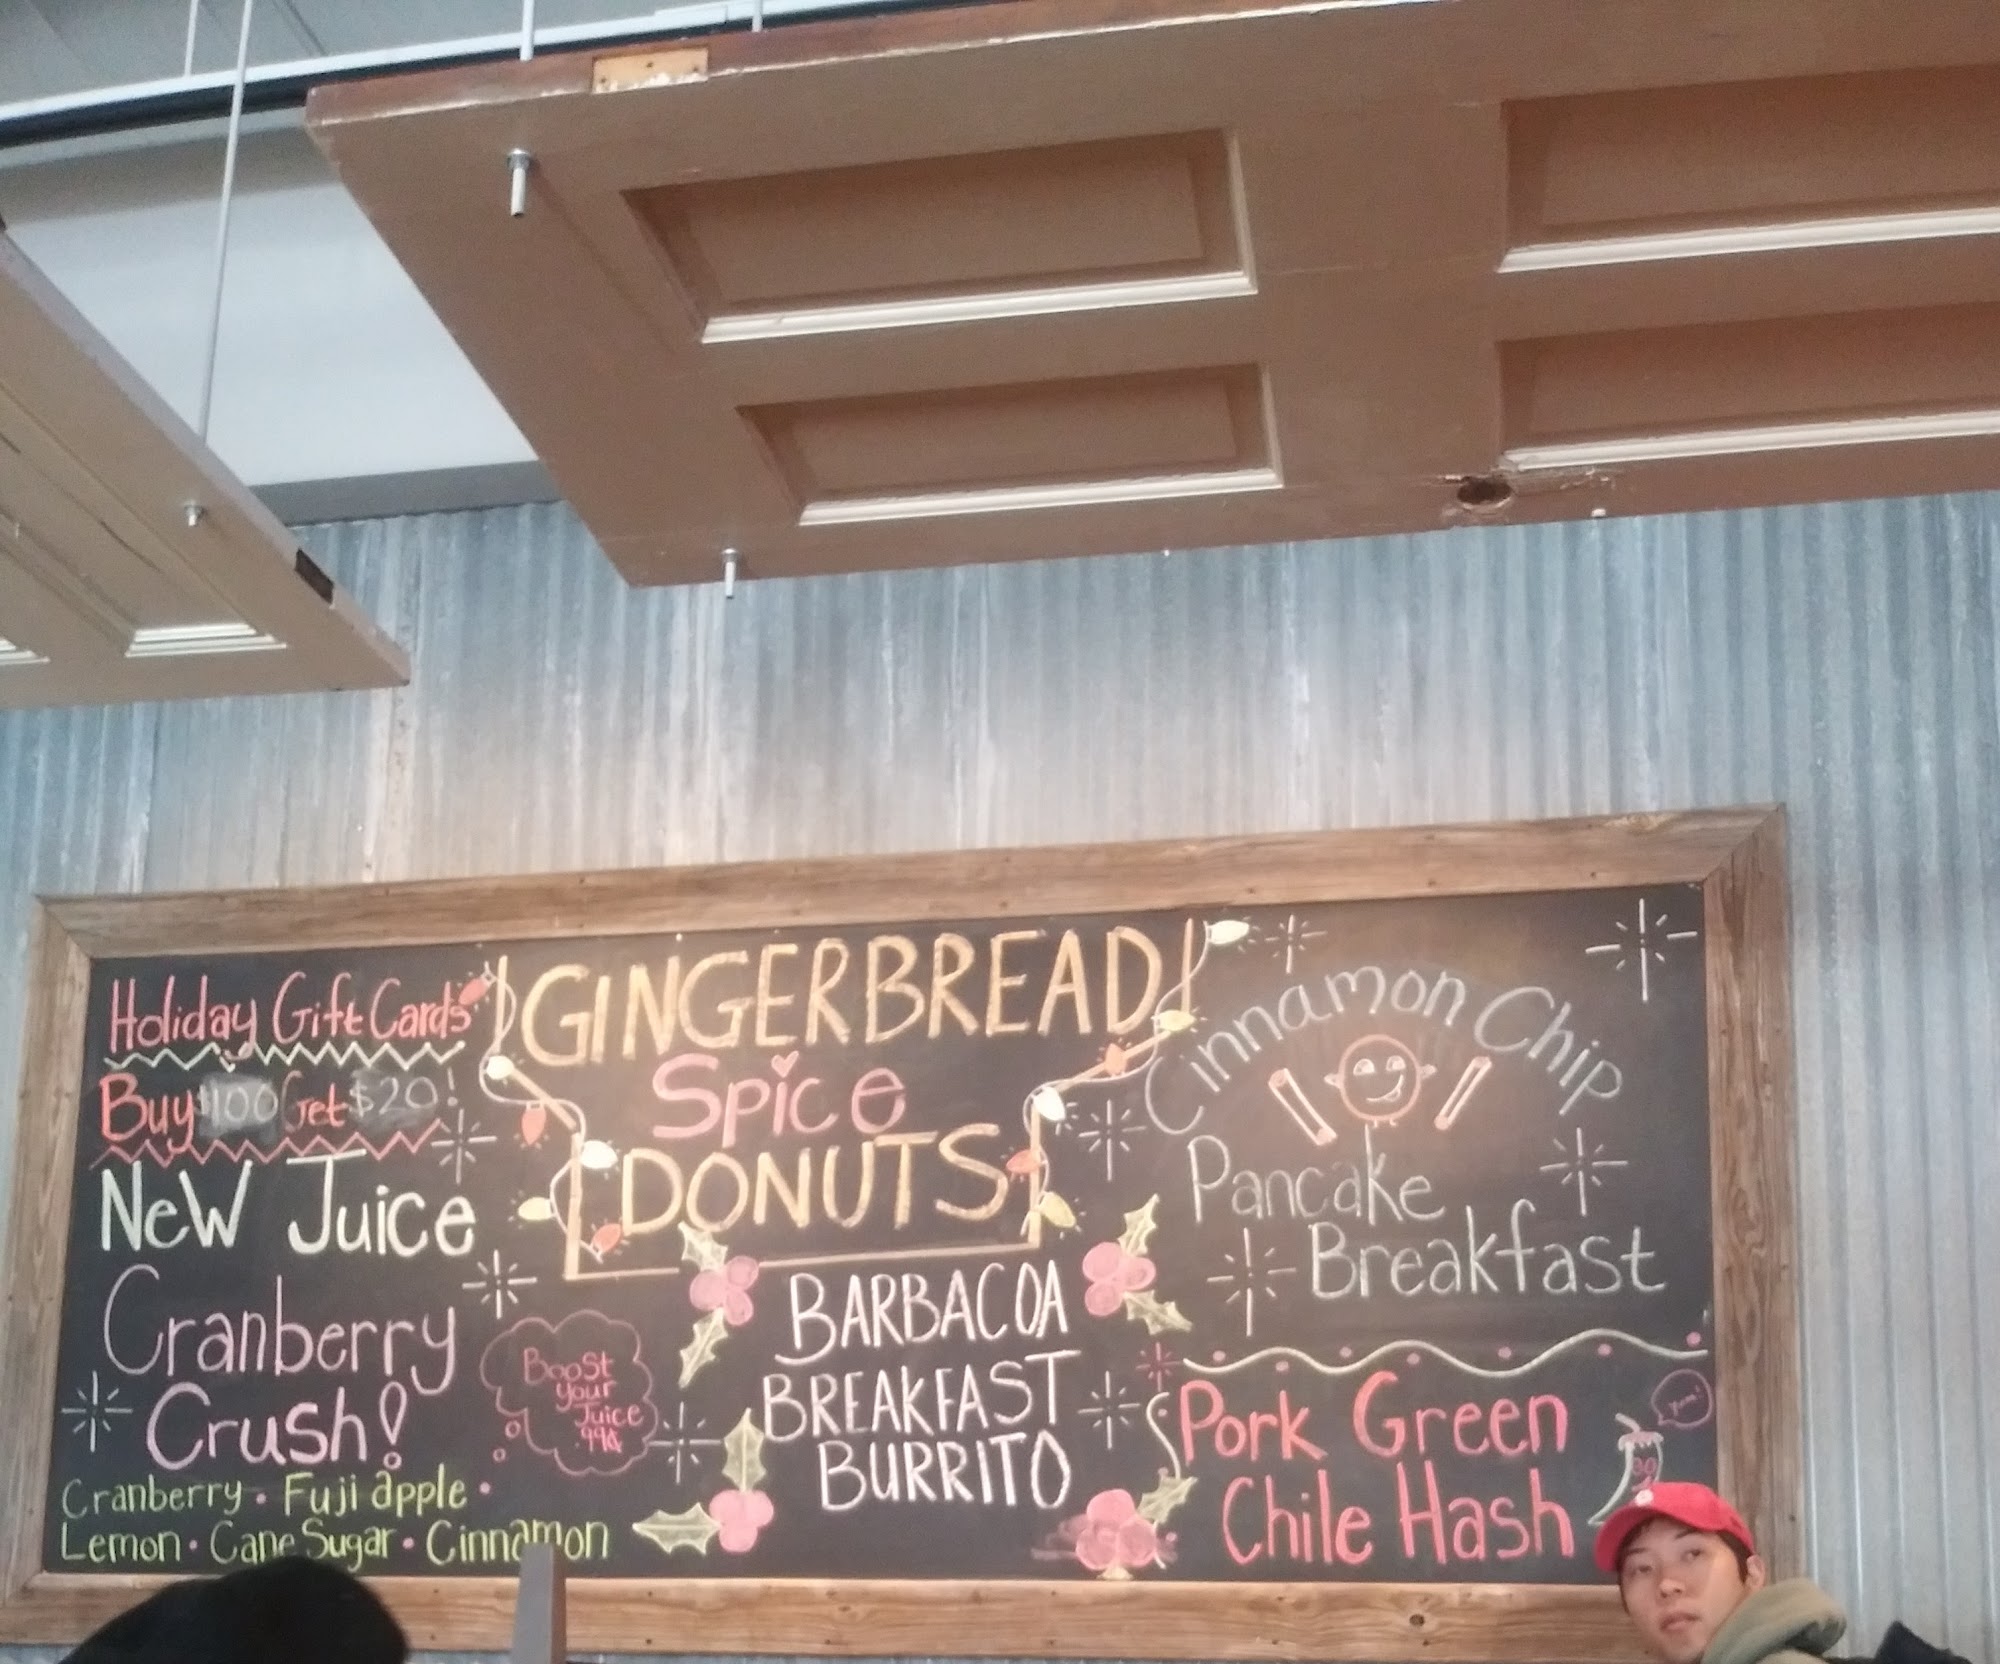 Holiday Gift Cards
Buy $100 Get $20!
New Juice
Cranberry
Crush!
Cranberry • Fuji apple •
Lemon • Cane Sugar • Cinnamon
Boost
your
Juice
.99¢
GINGERBREAD
Spice
DONUTS
BARBACOA
BREAKFAST
BURRITO
Cinnamon Chip
Pancake
Breakfast
Pork Green
Chile Hash